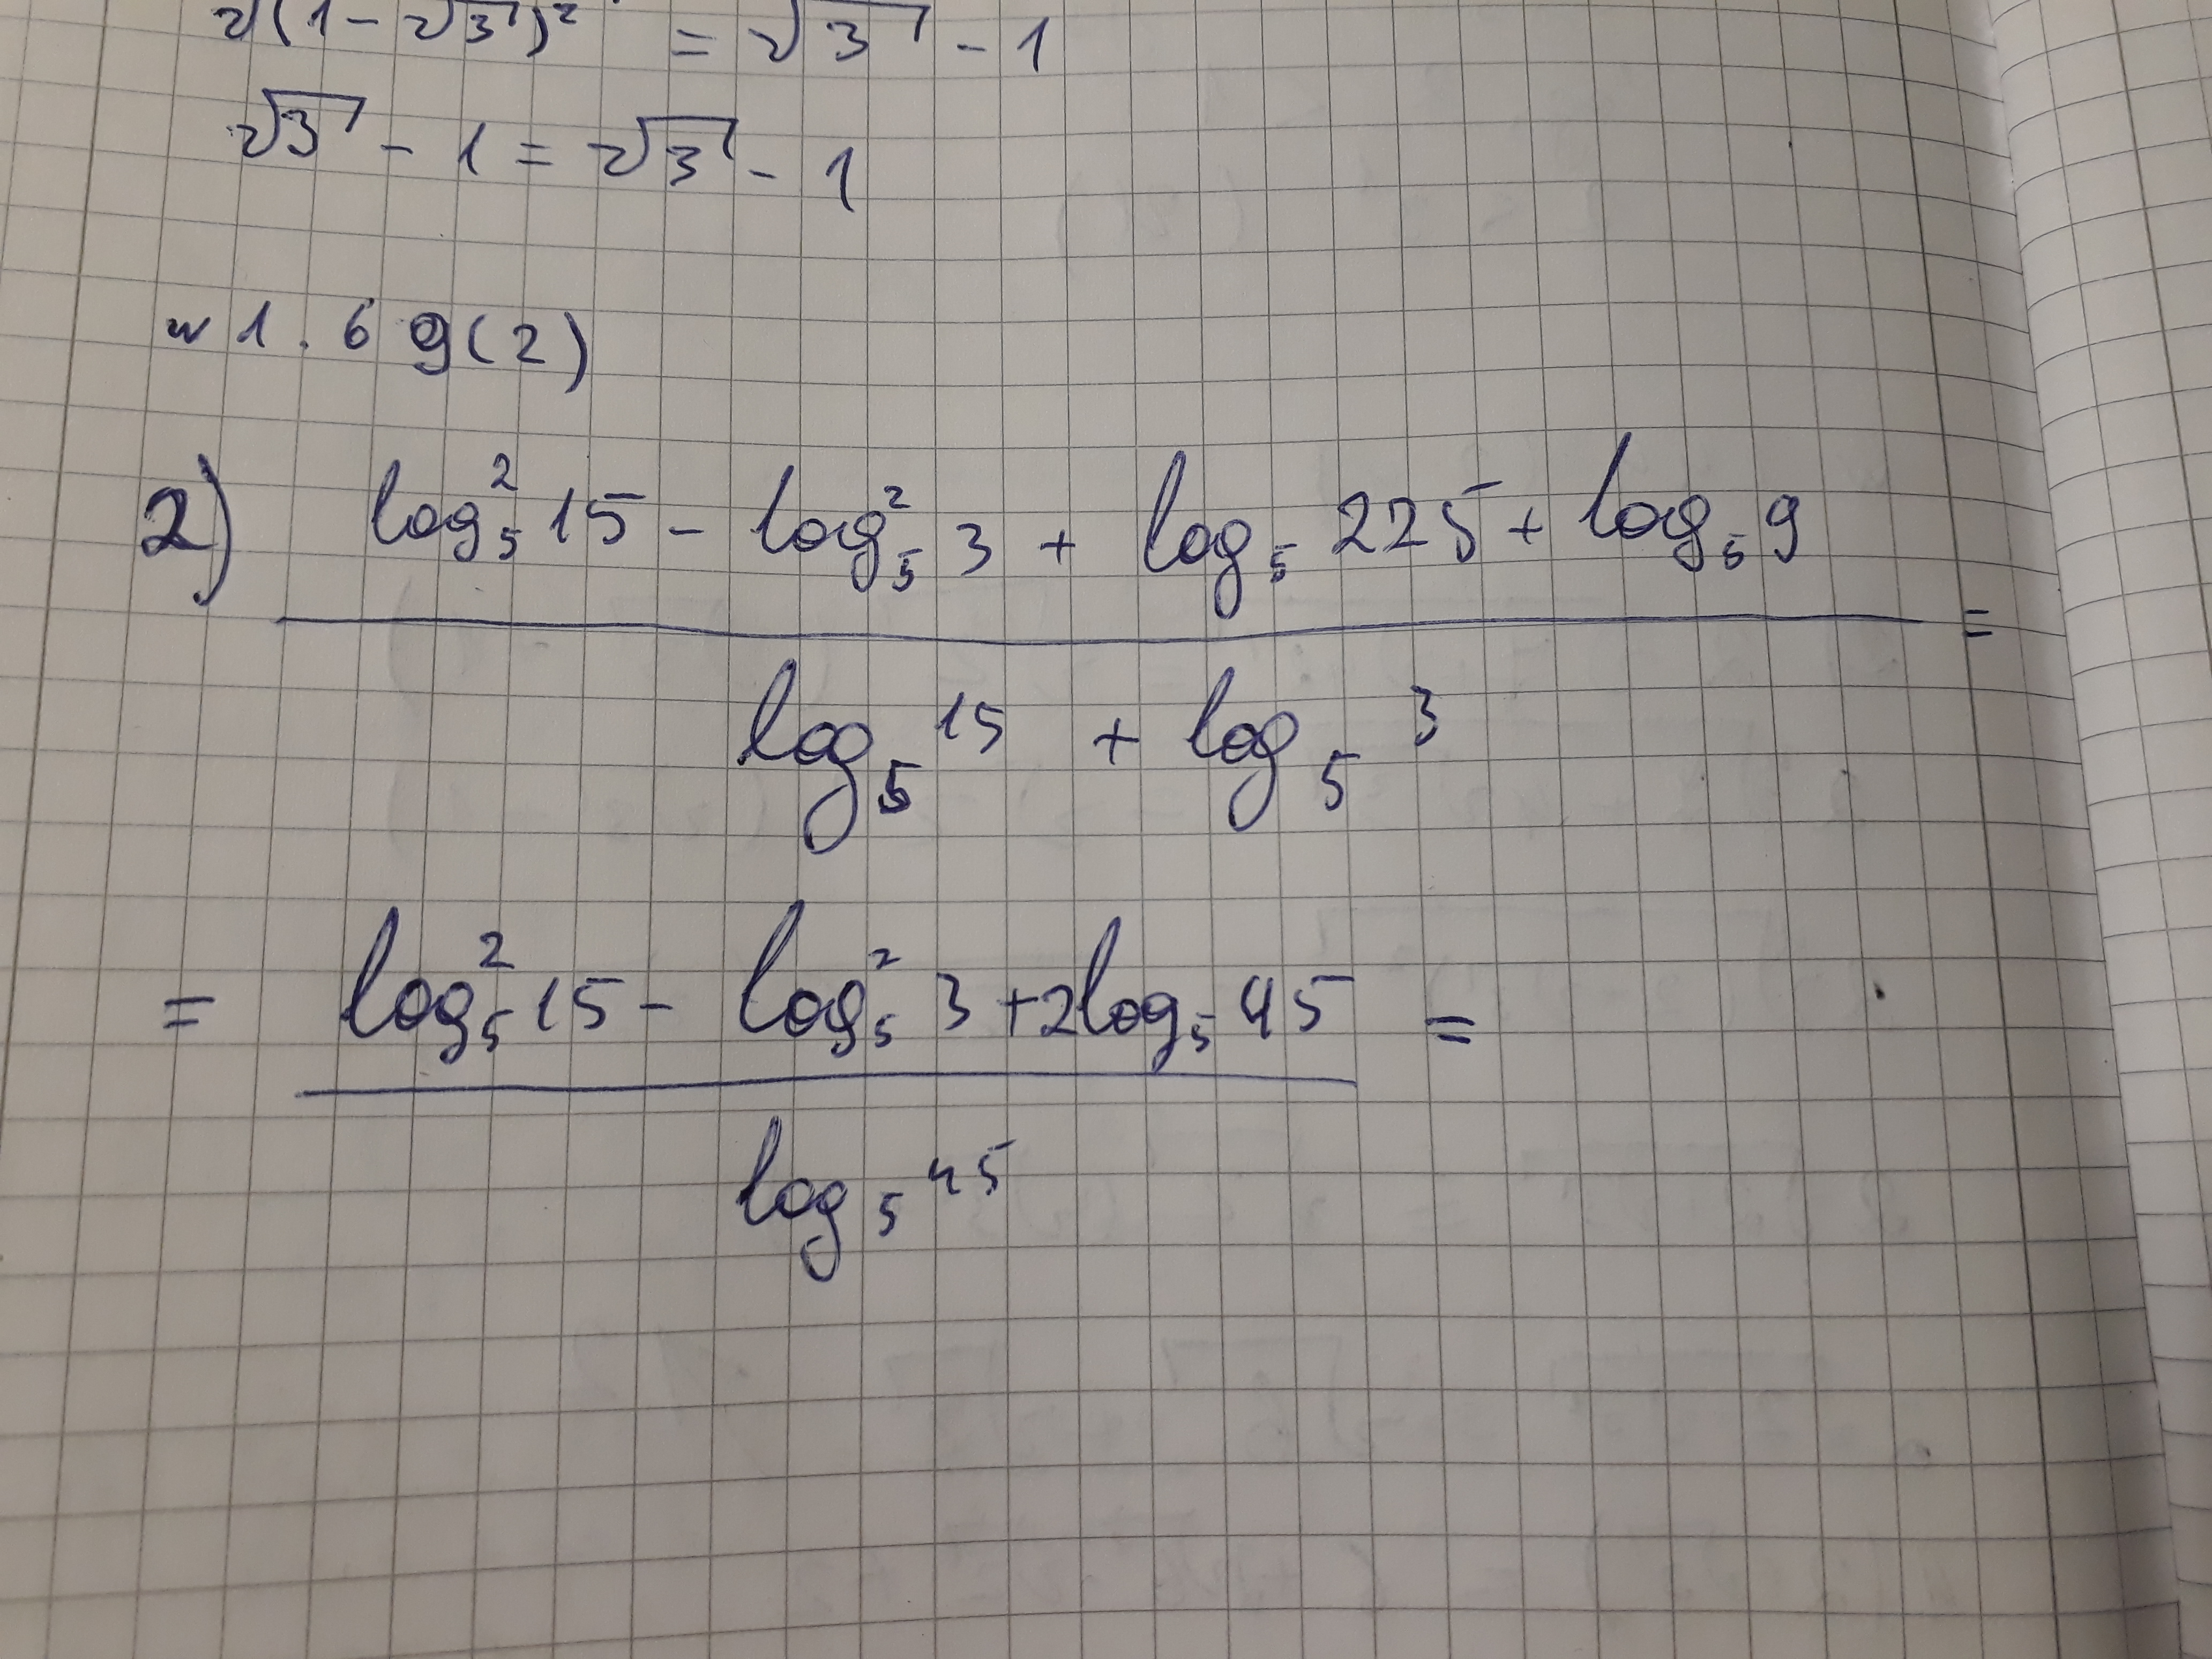 √(1-√3)² = √3 - 1
√3 - 1 = √3 - 1
w 1.6 9(2)
2) log₅² 15 - log₅² 3 + log₅ 225 + log₅ 9 =
log₅ 15 + log₅ 3
= log₅² 15 - log₅² 3 + 2log₅ 45 =
log₅ 45